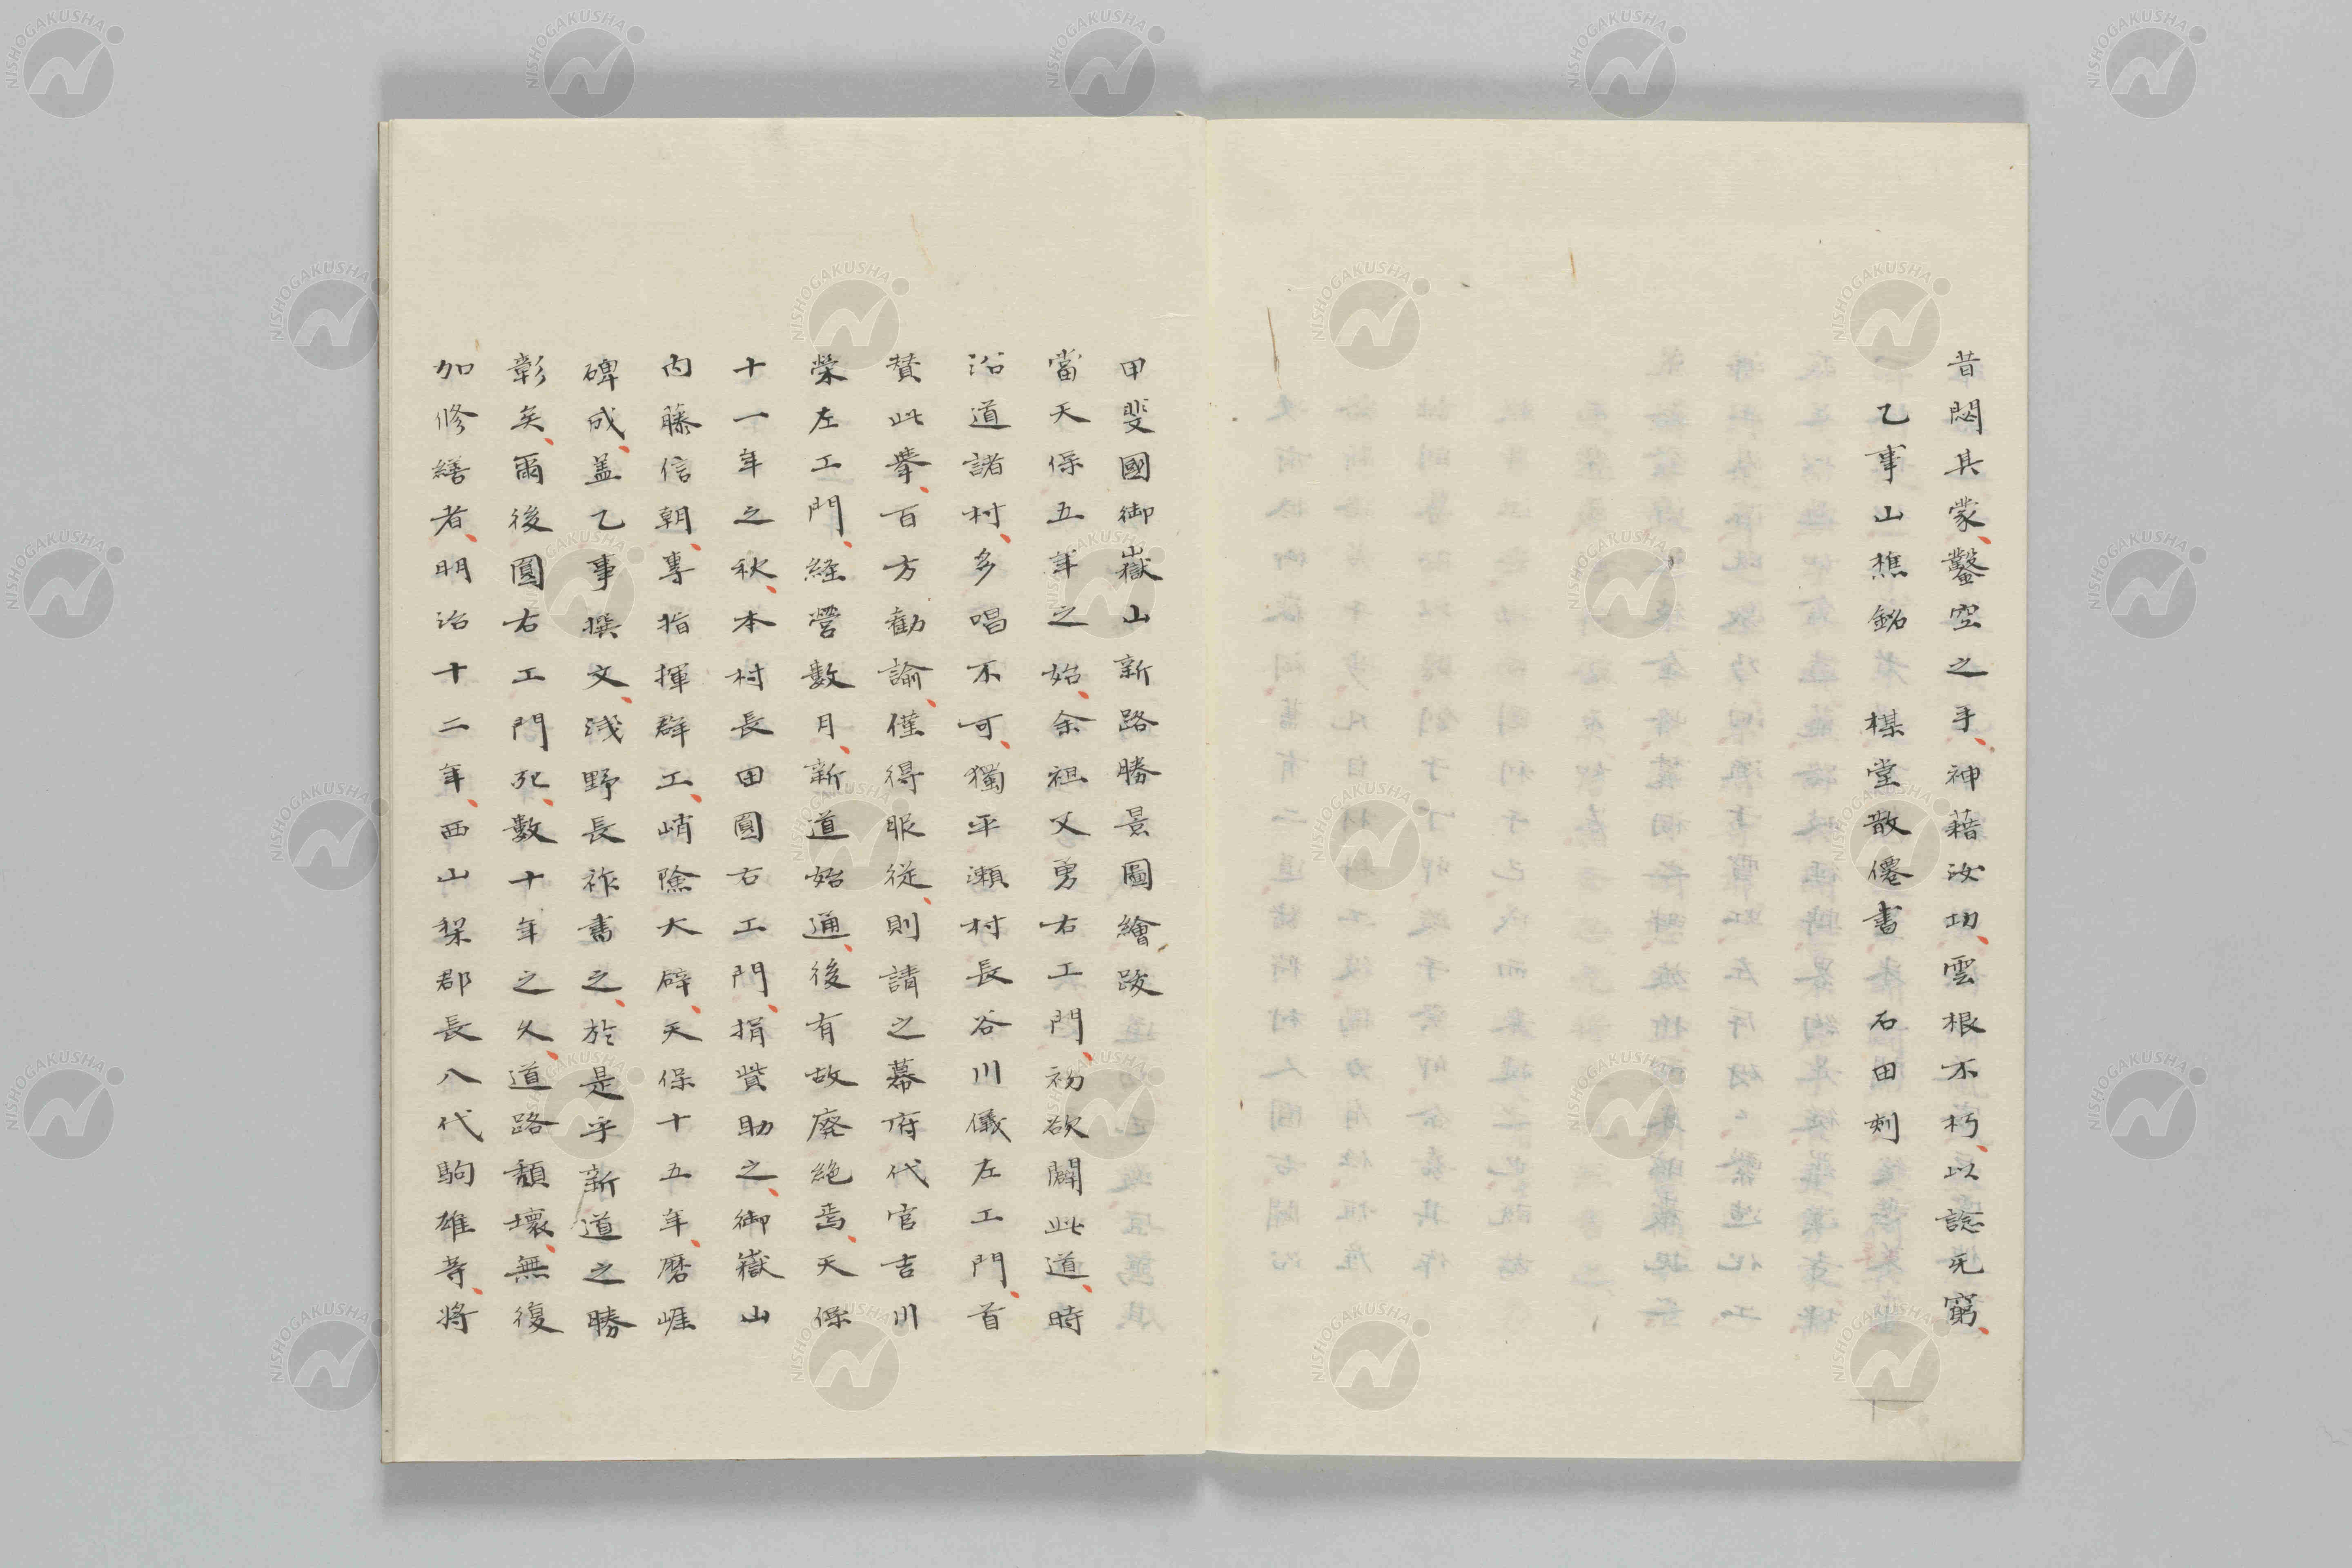 昔閟其蒙、鑿空之手、神藉汝功、雲根不朽、以諗无窮、
乙事山樵銘 楳堂散僊書 石田刻
甲斐國御嶽山新路勝景圖繪跋
當天保五年之始、余祖父勇右工門、初欲闢此道、時
沿道諸村、多唱不可、獨平瀬村長谷川儀左工門、首
賛此擧、百方勸諭、僅得服従、則請之幕府代官吉川
榮左工門、経營數月、新道始通、後有故廃絶焉、天保
十一年之秋、本村長田圓右工門、捐貲助之、御嶽山
内藤信朝、專指揮群工、峭険大辟、天保十五年、磨崕
碑成、盖乙事撰文、浅野長祚書之、於是乎新道之勝
彰矣、爾後圓右工門死、數十年之久、道路頽壞、無復
加修繕者、明治十二年、西山梨郡長八代駒雄等、將
NISHOGAKUSHA